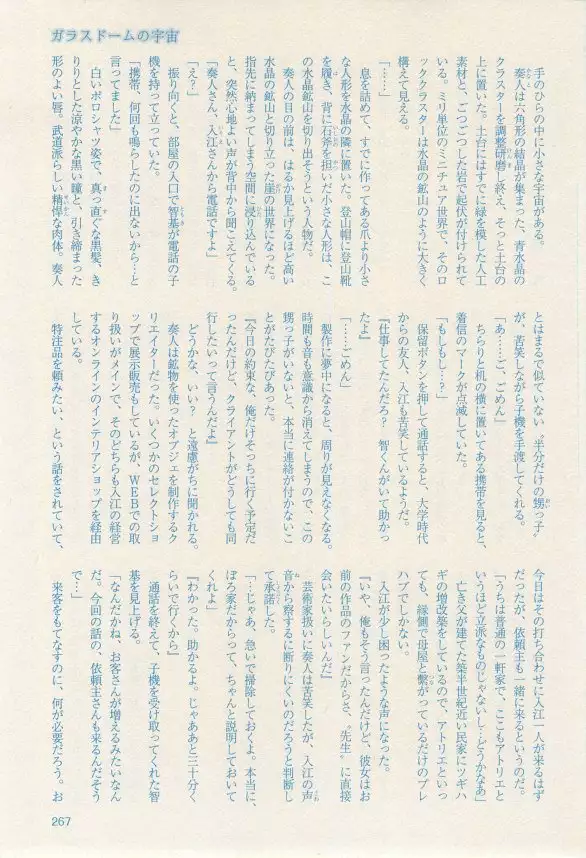 ガラスドームの宇宙
手のひらの中に小さな宇宙がある。
奏人は六角形の結晶が集まった、青水晶の
クラスターを調整研磨し終え、そっと土台の
上に置いた。土台にはすでに緑を模した人工
素材と、ごつごつした岩で起伏が付けられて
いる。ミリ単位のミニチュア世界で、そのロ
ッククラスターは水晶の鉱山のように大きく
構えて見える。
「……」
息を詰めて、すでに作ってある爪より小さ
な人形を水晶の隣に置いた。登山帽に登山靴
を履き、背に石斧を担いだ小さな人形は、こ
の水晶鉱山を切り出そうという人物だ。
奏人の目の前は、はるか見上げるほど高い
水晶の鉱山と切り立った崖の世界になった。
指先に納まってしまう空間に浸り込んでいる
と、突然心地よい声が背中から聞こえてくる。
「奏人さん、入江さんから電話ですよ」
「え?」
振り向くと、部屋の入口で智基が電話の子
機を持って立っていた。
「携帯、何回も鳴らしたのに出ないから…と
言ってました」
白いポロシャツ姿で、真っ直ぐな黒髪、き
りりとした涼やかな黒い瞳と、引き締まった
形のよい唇。武道派らしい精悍な肉体。奏人
とはまるで似ていない〝半分だけの甥っ子〟
が、苦笑しながら子機を手渡してくれる。
「あ……ご、ごめん」
ちらりと机の横に置いてある携帯を見ると、
着信のマークが点滅していた。
「もしもし…?」
保留ボタンを押して通話すると、大学時代
からの友人、入江も苦笑しているようだ。
『仕事してたんだろ? 智くんがいて助かっ
たよ』
「……ごめん」
製作に夢中になると、周りが見えなくなる。
時間も音も意識から消えてしまうので、この
甥っ子がいないと、本当に連絡が付かないこ
とがたびたびあった。
『今日の約束な、俺だけそっちに行く予定だ
ったんだけど、クライアントがどうしても同
行したいって言うんだよ』
どうかな、いい? と遠慮がちに聞かれる。
奏人は鉱物を使ったオブジェを制作するク
リエイターだった。いくつかのセレクトショ
ップで展示販売もしているが、WEBでの取
り扱いがメインで、そのどちらも入江の経営
するオンラインのインテリアショップを経由
している。
特注品を頼みたい、という話をされていて、
今日はその打ち合わせに入江一人が来るはず
だったが、依頼主も一緒に来るというのだ。
「うちは普通の一軒家で、ここもアトリエと
いうほど立派なものじゃないし…どうかなぁ」
亡き父が建てた築半世紀近い民家にツギハ
ギの増改築をしているので、アトリエといっ
ても、縁側で母屋と繫がっているだけのプレ
ハブでしかない。
入江が少し困ったような声になった。
『いや、俺もそう言ったんだけど、彼女はお
前の作品のファンだからさ、〝先生〟に直接
会いたいらしいんだ』
芸術家扱いに奏人は苦笑したが、入江の声
音から察するに断りにくいのだろうと判断し
て承諾した。
「…じゃあ、急いで掃除しておくよ。本当に、
ぼろ家だからって、ちゃんと説明しておいて
くれよ」
『わかった。助かるよ。じゃああと三十分く
らいで行くから』
通話を終えて、子機を受け取ってくれた智
基を見上げる。
「なんだかね、お客さんが増えるみたいなん
だ。今回の話の、依頼主さんも来るんだそう
で…」
来客をもてなすのに、何が必要だろう。お
267